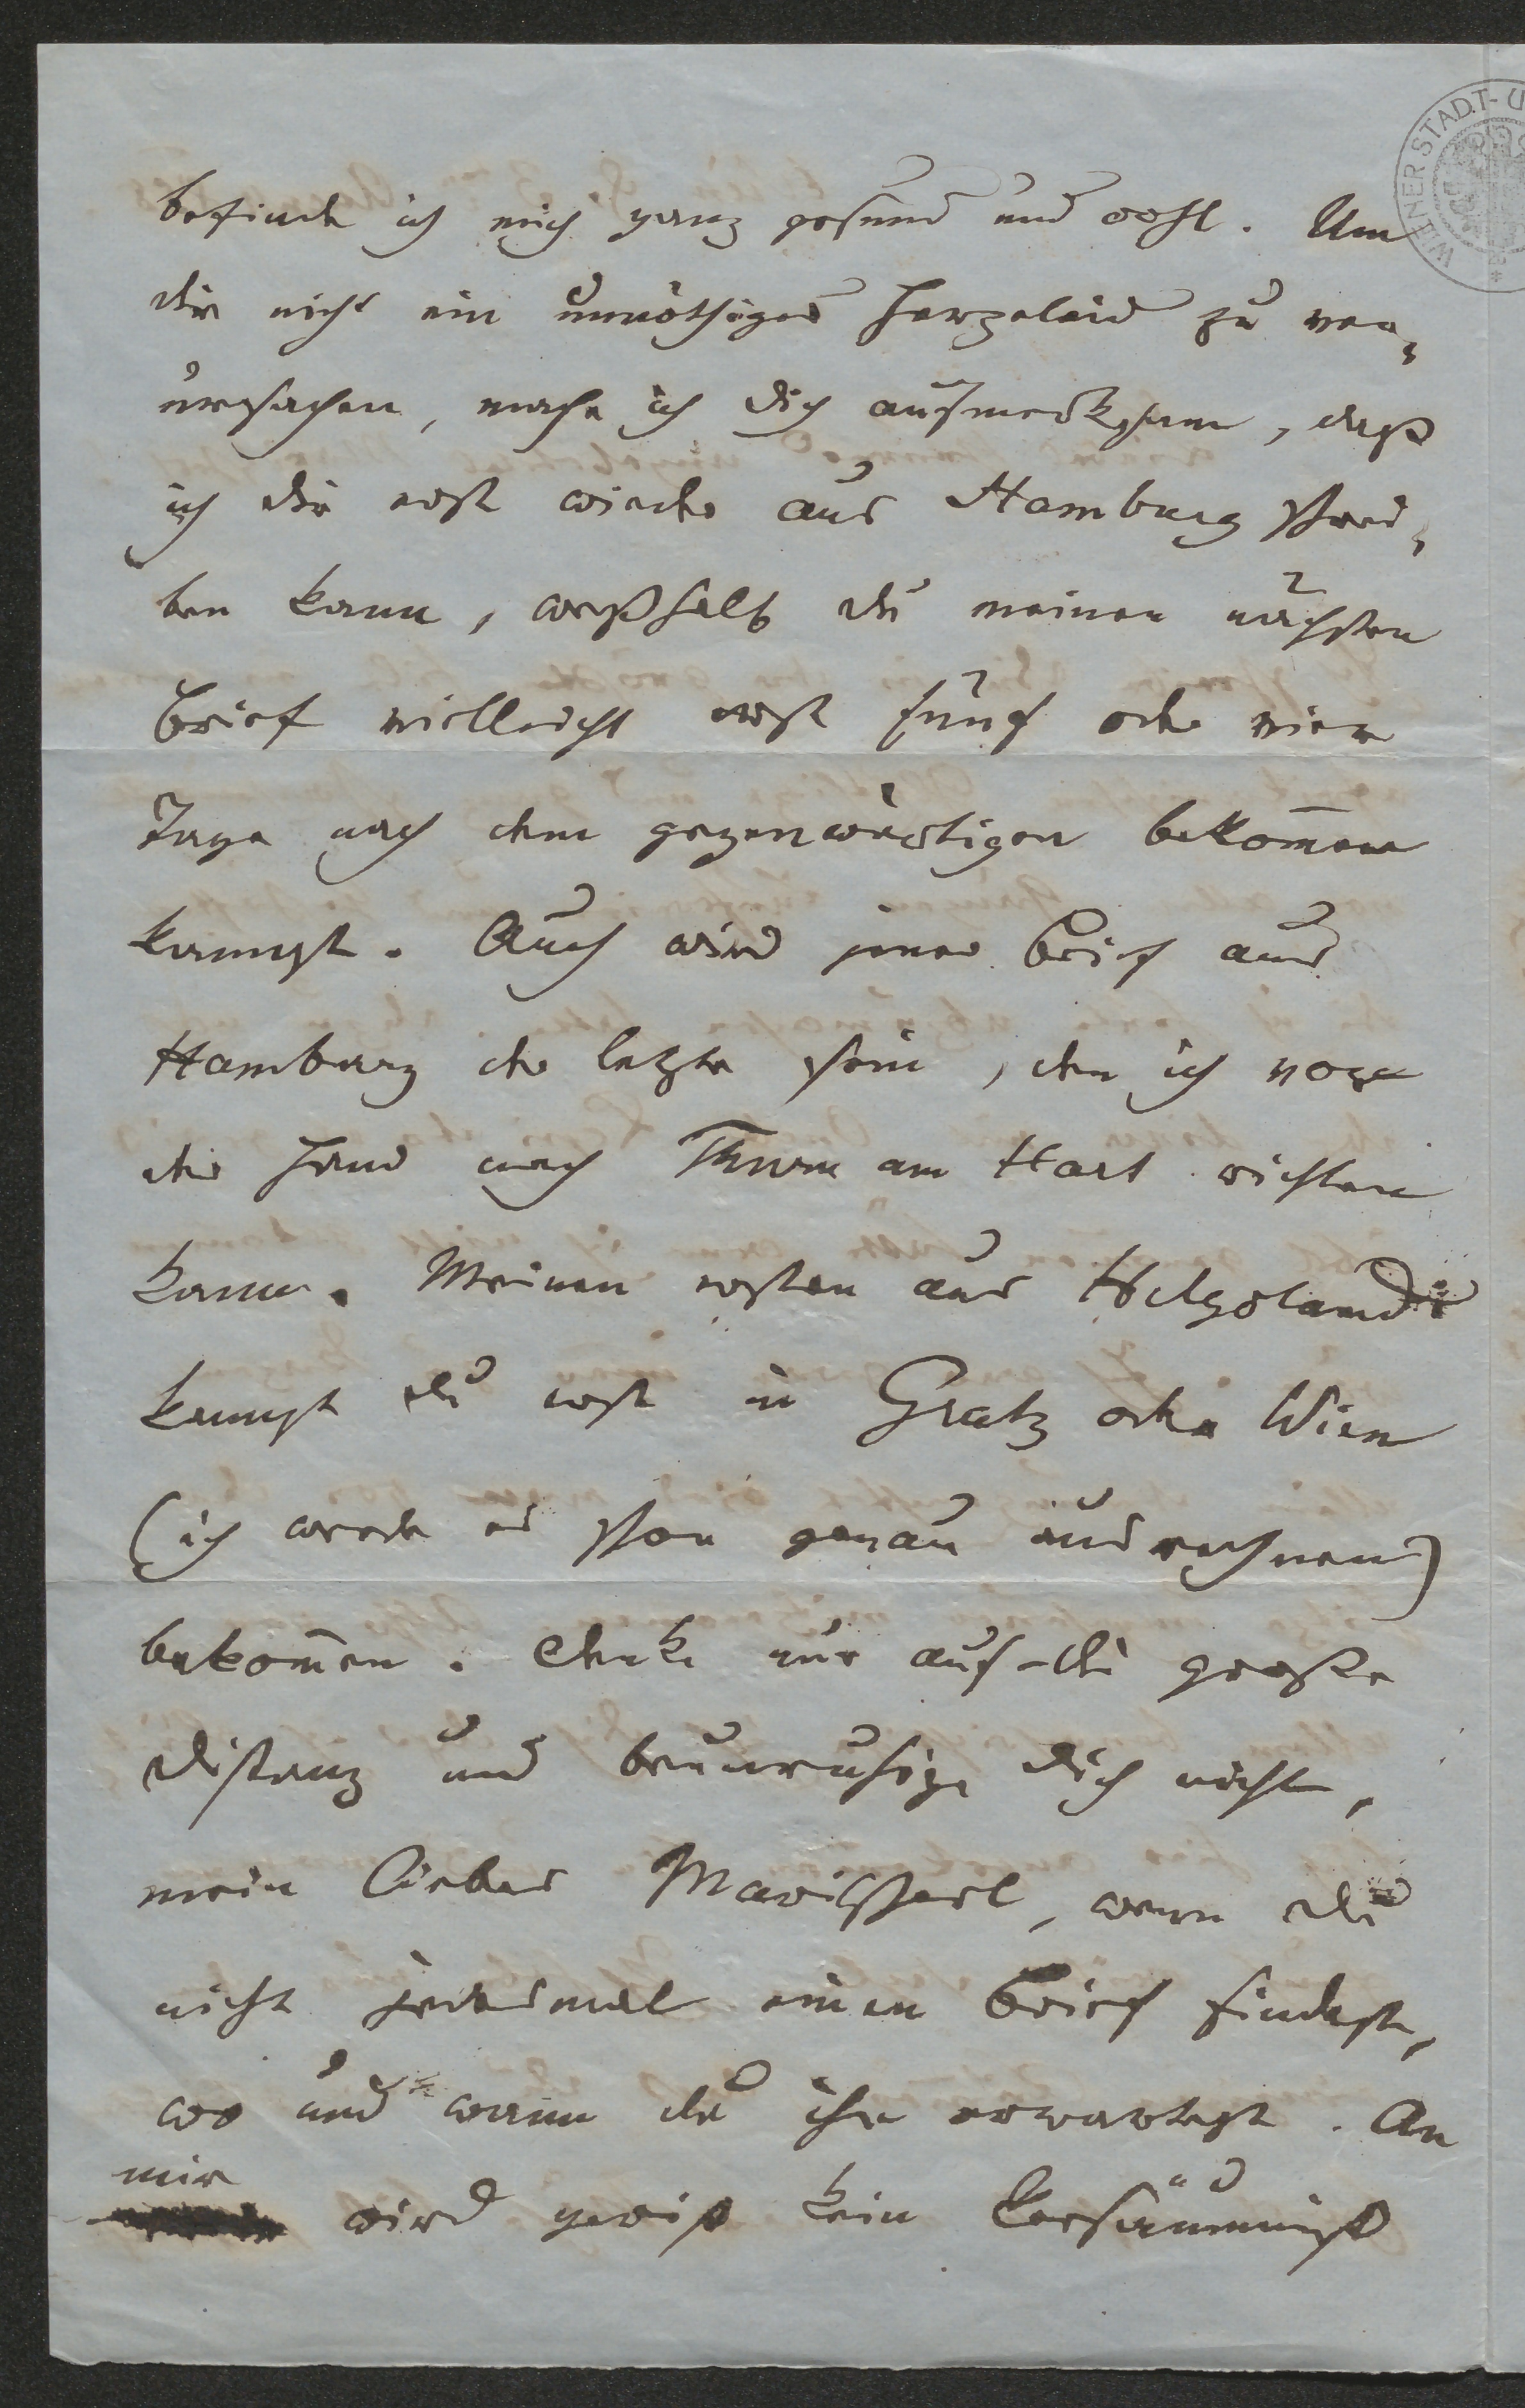 befinde ich mich ganz gesund und wohl. Um
dir nicht ein unnöthiges Herzeleid zu ver-
ursachen, mache ich dich aufmerksam, daß
ich dir erst wieder aus Hamburg schrei-
ben kann, weßhalb du meinen nächsten
Brief vielleicht erst fünf oder vier
Tage nach dem gegenwärtigen bekom̅en
kannst. Auch wird jener Brief aus
Hamburg der letzte sein, den ich vor
der Hand nach Thurn am Hart richten
kann. Meinen ersten aus Helgoland
kannst du erst in Gratz oder Wien
(ich werde es schon genau ausrechnen)
bekom̅en. Denke nur auf die große
Distanz und beunruhige dich nicht,
mein liebes Marischerl, wenn du
nicht jedesmal einen Brief findest,
wo und wann du ihn erwartest. An
mir
wird gewiß kein Versäumniß
WIENER STADT-U